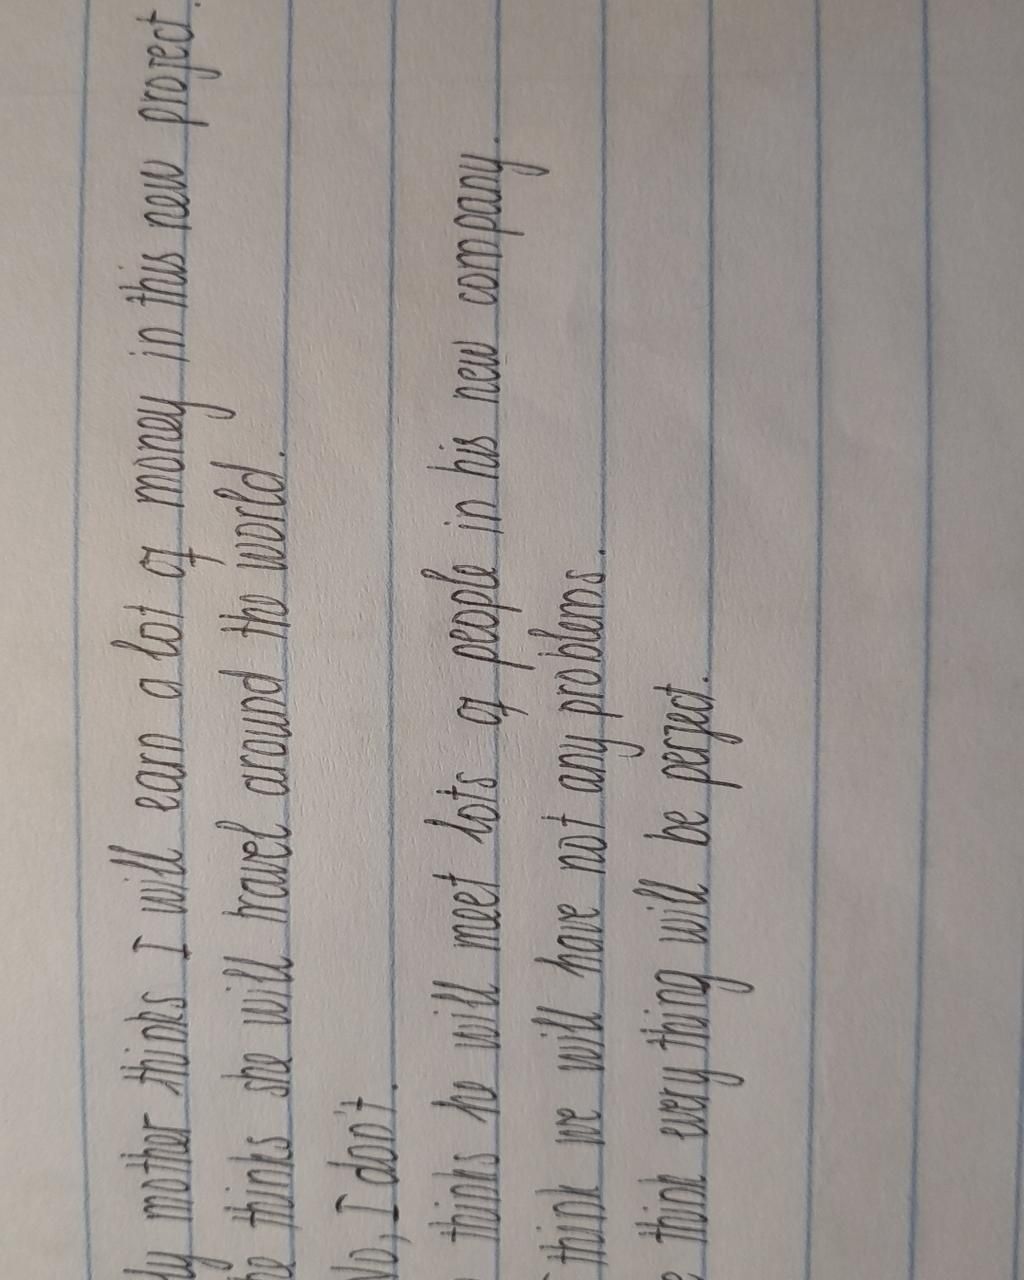 mother thinks I will earn a lot of money in this new project.
thinks she will travel around the world.
No, I don't.
thinks he will meet lots of people in his new company.
think we will have not any problems.
think every thing will be perfect.